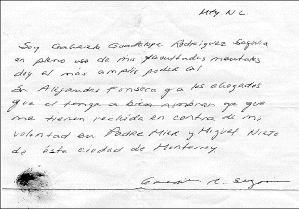 Mty NL
Soy Gabriela Guadalupe Rodriguez Segovia
en pleno uso de mis facultades mentales
doy el más amplio poder al
Sr. Alejandro Fonseca y a los abogados
que el tenga a bien nombrar ya que
me tienen recluida en contra de mi
voluntad en Padre Mier y Miguel Nieto
de ésta ciudad de Monterrey
R.